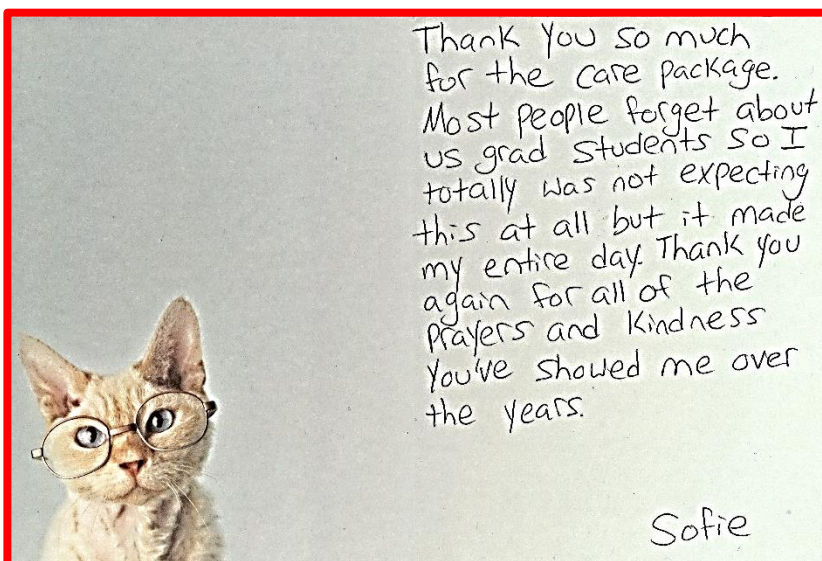 Thank you so much
for the care package.
Most people forget about
us grad students so I
totally was not expecting
this at all but it made
my entire day. Thank you
again for all of the
prayers and kindness
you've showed me over
the years.
Sofie